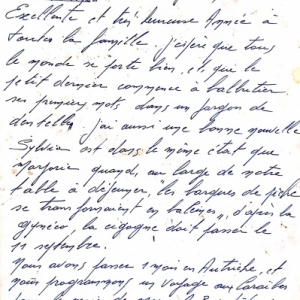 Excellente et très heureuse Année à
toutes la famille, j'espère que tous
le monde se porte bien, et que le
petit dernier commence à balbutier
ses premiers mots dans un jargon de
j'ai aussi une bonne nouvelle
Sylvia est dans le même état que
Marjorie quand, au large de notre
table à déjeuner, les barques de pêche
se transformaient en baleines", d'après la
gynéco, la cigogne doit passer le
11 septembre.
Nous avons passer 1 mois en Autriche, et
nous programmons un voyage aux Caraïbes